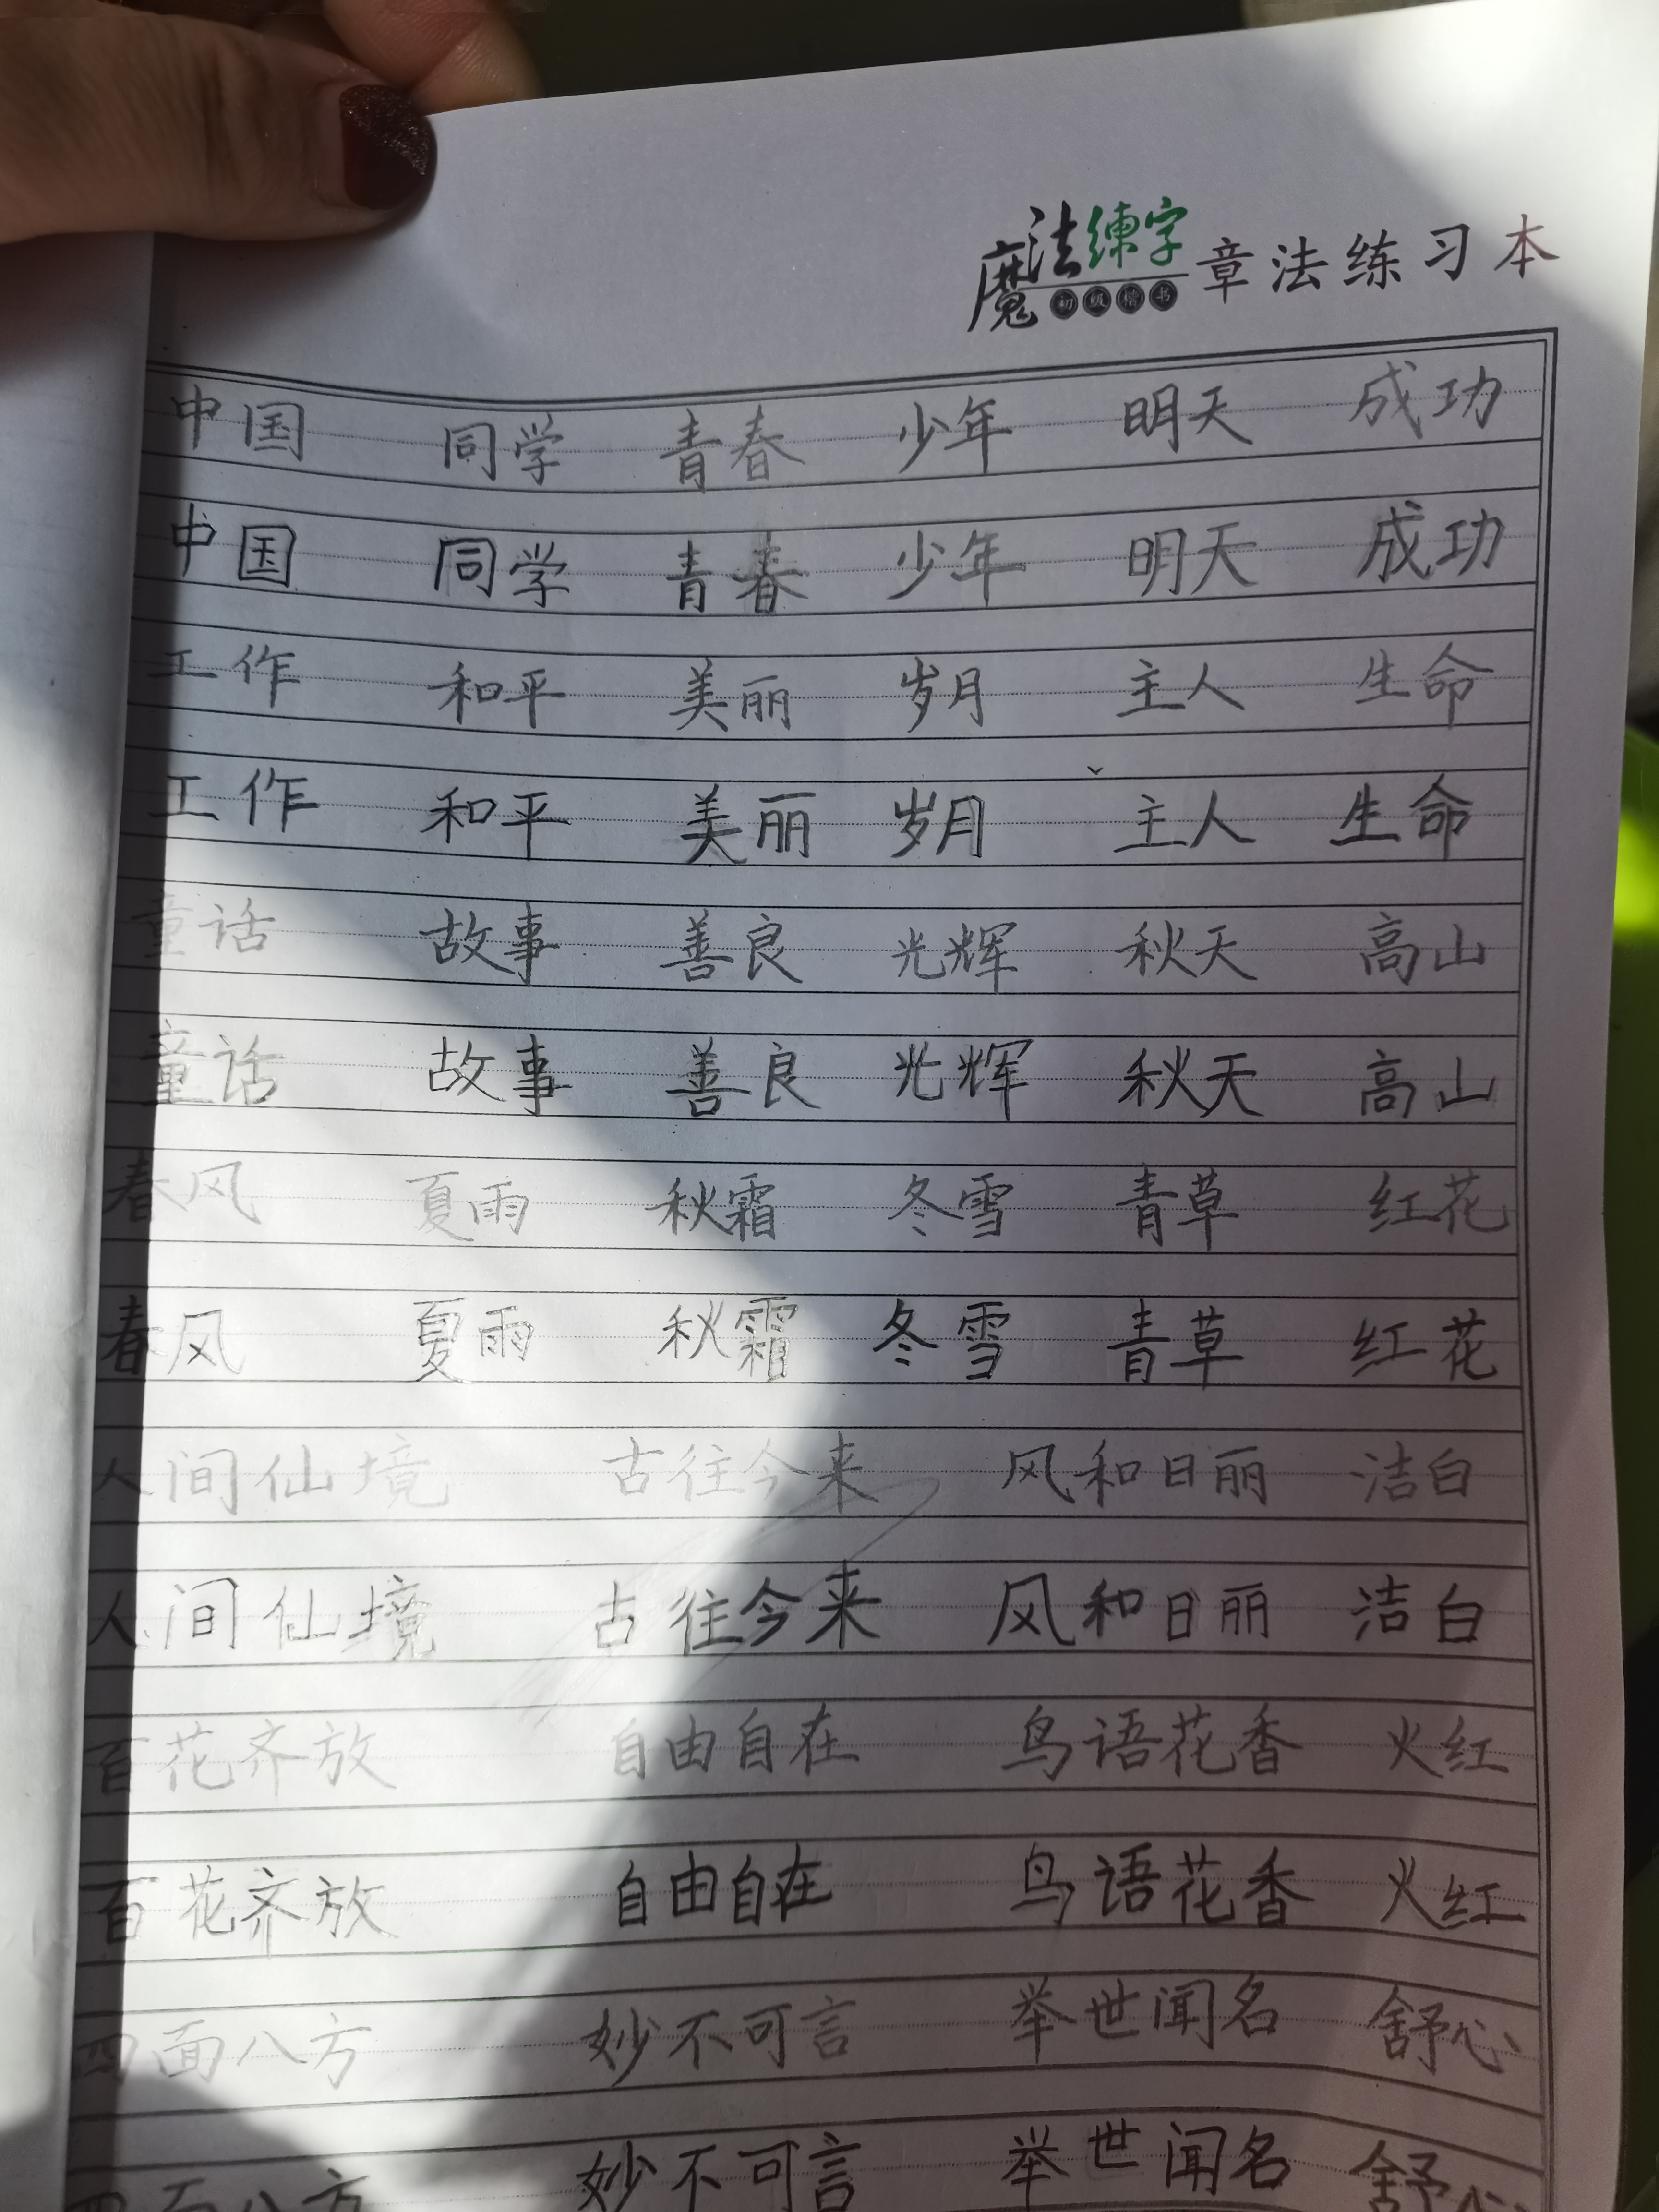 魔法练字 初级楷书 章法练习本
中国 同学 青春 少年 明天 成功
中国 同学 青春 少年 明天 成功
工作 和平 美丽 岁月 主人 生命
工作 和平 美丽 岁月 主人 生命
童话 故事 善良 光辉 秋天 高山
童话 故事 善良 光辉 秋天 高山
春风 夏雨 秋霜 冬雪 青草 红花
春风 夏雨 秋霜 冬雪 青草 红花
人间仙境 古往今来 风和日丽 洁白
人间仙境 古往今来 风和日丽 洁白
百花齐放 自由自在 鸟语花香 火红
百花齐放 自由自在 鸟语花香 火红
四面八方 妙不可言 举世闻名 舒心
四面八方 妙不可言 举世闻名 舒心